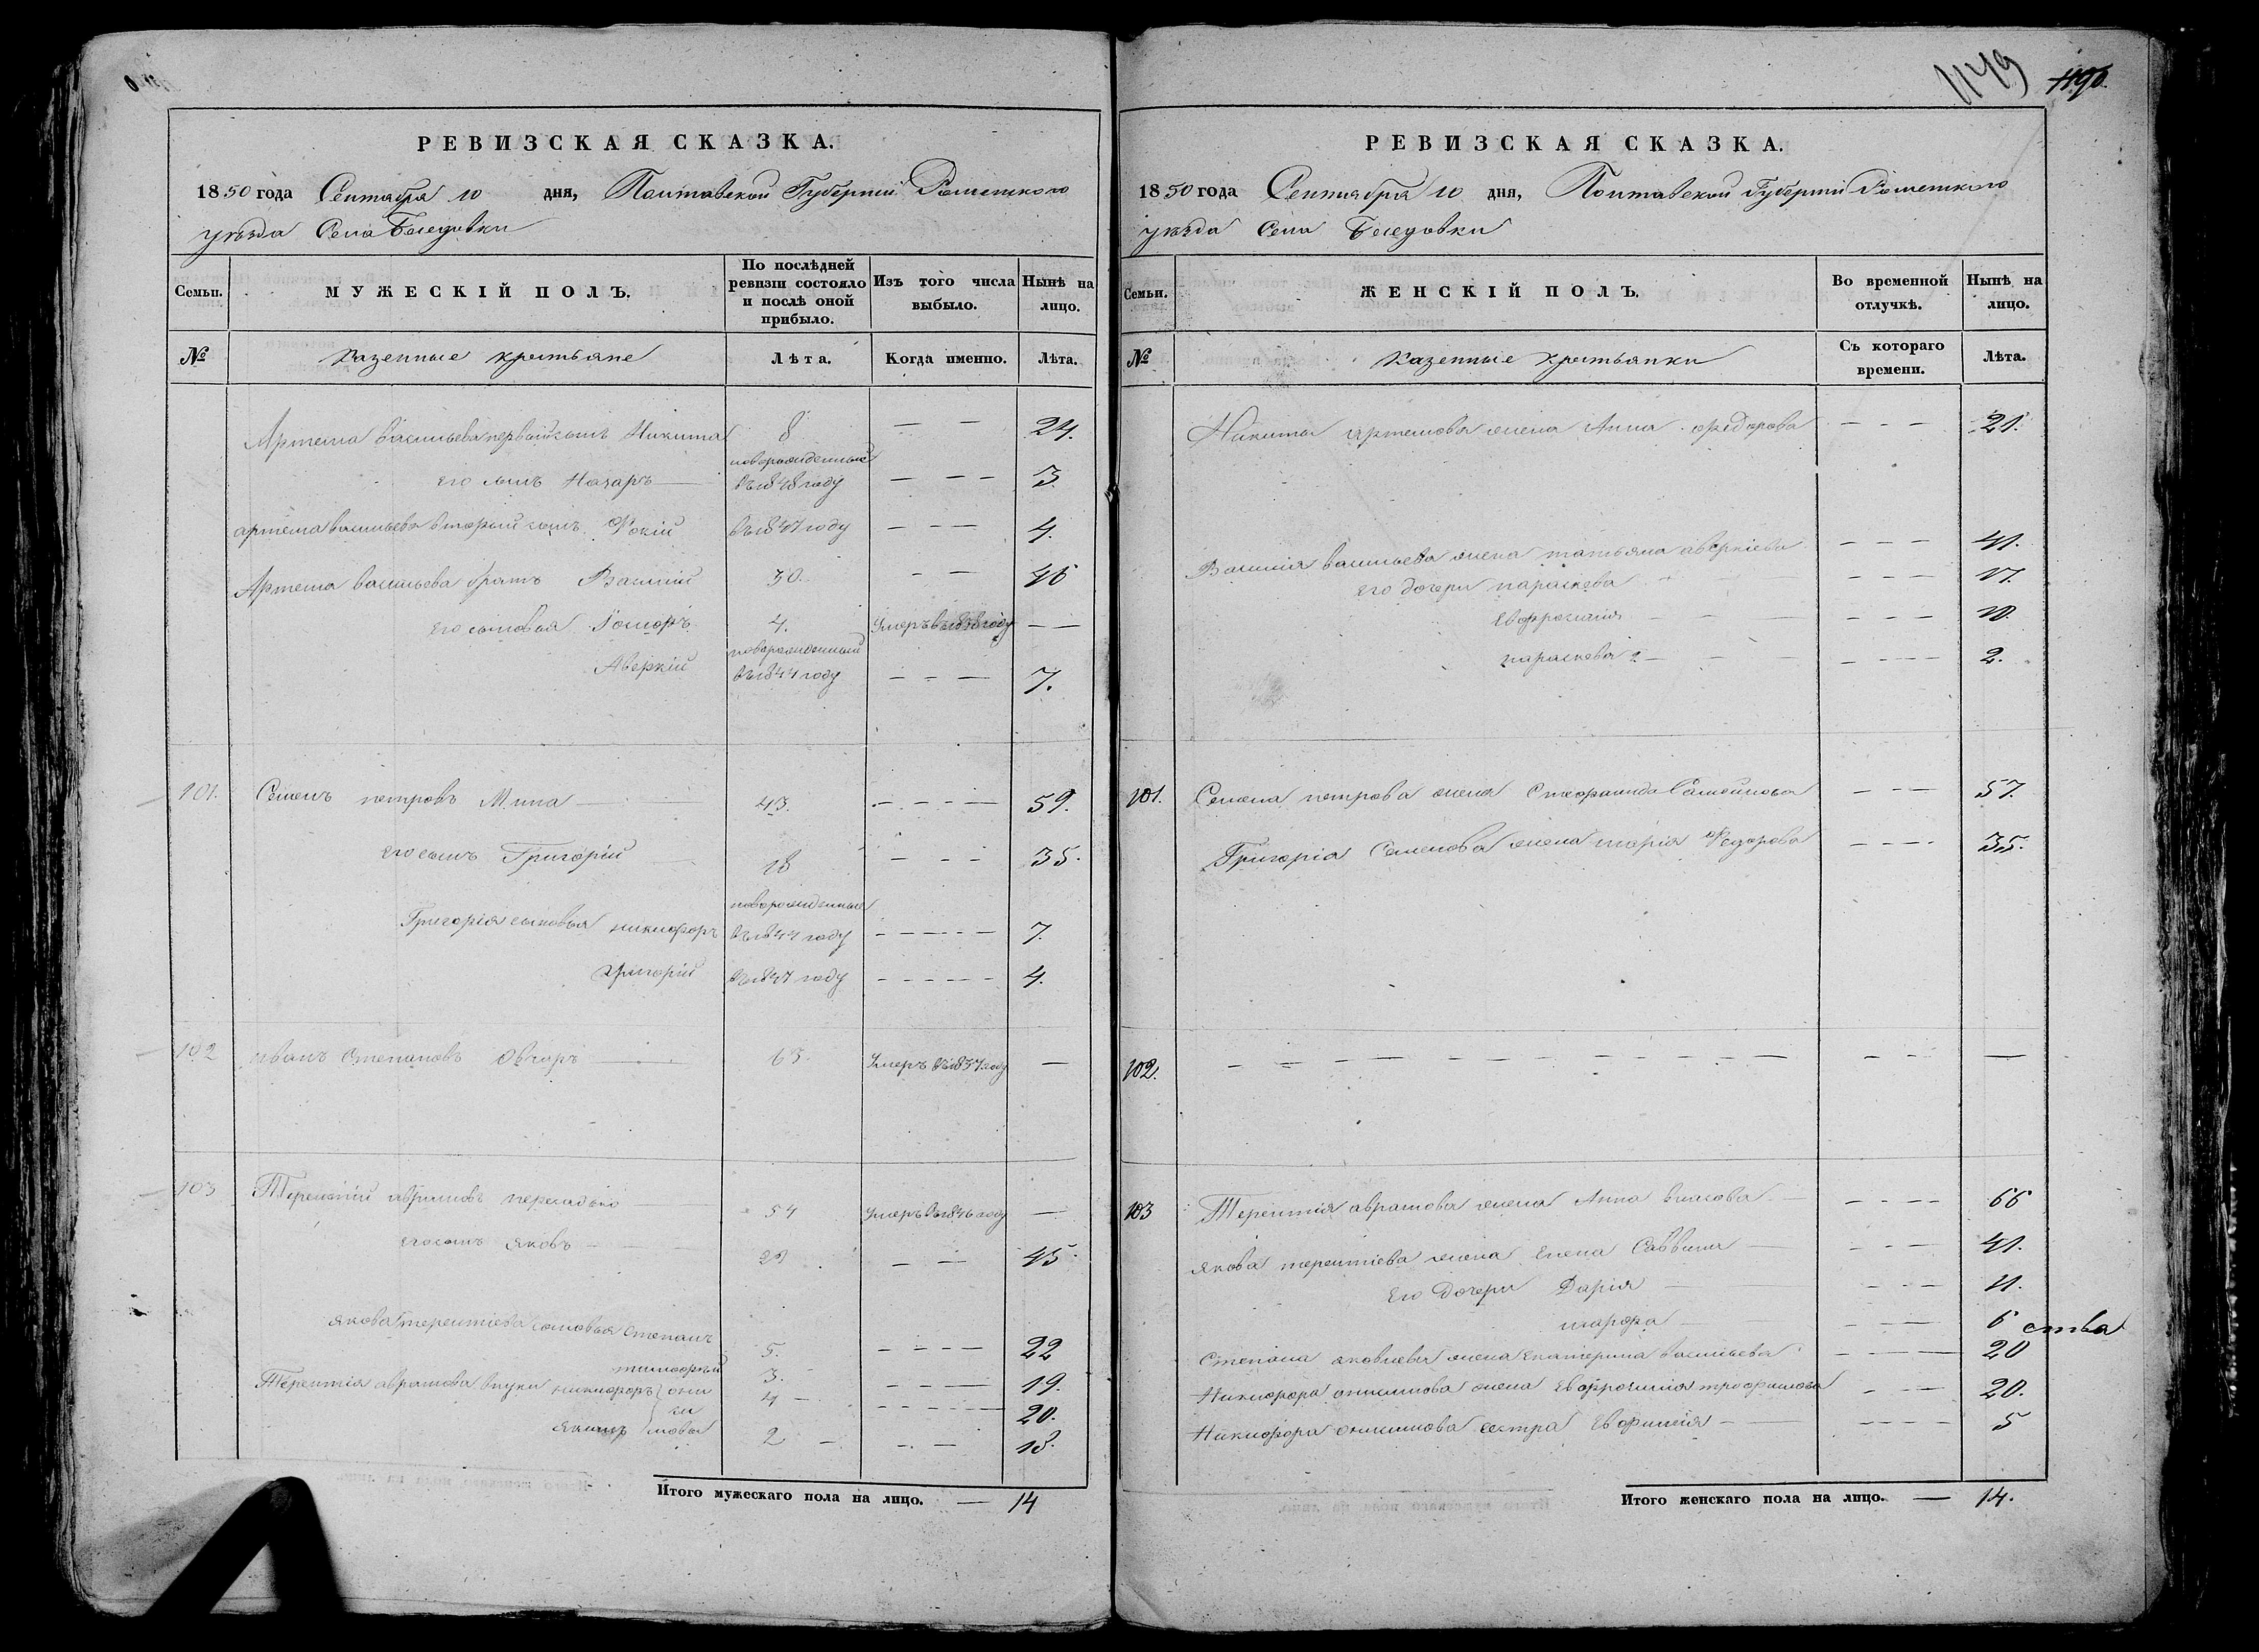 1149 1190.
РЕВИЗСКАЯ СКАЗКА.
1850 года Сентября 10 дня, Полтавской Губерніи Роменского
уѣзда Села Беседовки
Семьи. МУЖЕСКІЙ ПОЛЪ. По послѣдней ревизіи состояло и послѣ оной прибыло. Изъ того числа выбыло. Нынѣ на лицо.
№ Казенные крестьяне Лѣта. Когда именно. Лѣта.
Артема васильева первый сынъ Никита 8 — — 24.
новорожденный
его сынъ Назаръ въ 1848 году — — — 3.
артема васильева вторый сынъ Фокій въ 1847 году — — — 4.
Артема васильева братъ Василий 30. — — 46
его сыновья 4. умеръ въ 1838 году — —
новорожденный
Аверкій въ 1844 году — — — 7.
101. Семенъ петровъ Мина 43. — — — — 59.
его сынъ Григорій 18 — — — 35.
новорожденные
Григорія сыновья никифоръ въ 1844 году — — — — — 7.
Григорій въ 1847 году — — — — — 4.
102 иванъ Степановъ Овчаръ 63. умеръ въ 1837 году —
103 Терентій аврамовъ пересадько 54 умеръ въ 1846 году —
его сынъ яковъ 29 — — 45.
якова терентіева сыновья степанъ 5. — — — — 22
тимофѣй 3. — — — — 19.
Терентія аврамова внуки никифоръ они 4 — — — — — 20.
якимъ симовы 2 — — 18.
Итого мужескаго пола на лицо. — 14
РЕВИЗСКАЯ СКАЗКА.
1850 года Сентября 10 дня, Полтавской Губерніи Роменского
уѣзда Села Беседовки
Семьи. ЖЕНСКІЙ ПОЛЪ. Во временной отлучкѣ. Нынѣ на лицо.
№ Казенные крестьянки Съ котораго времени. Лѣта.
Никиты артемова жена Анна федорова — — — 21.
Василія васильева жена татьяна аверкіева — — — 41.
его дочери параскева — — — 17.
Евфросинія — — — 10.
параскева 2 — — — — 2.
101. Семена петрова жена Стефанида Самойлова — — — 57.
Григорія Семенова жена марія Федорова — — — 35.
102. — — — — — — — — — — — — — —
103 Терентія аврамова жена Анна власова — — — — 66
якова терентіева жена Елена Саввина — — — 41.
Его дочери Дарія — — — 11.
марфа — — — 6
ства
Степана яковлева жена Екатерина васильева — — — — 20
Никифора онисимова жена Евфросинія трофимова — — — 20.
Никифора онисимова сестра Евфимія — — — — 5
Итого женскаго пола на лицо. — 14.